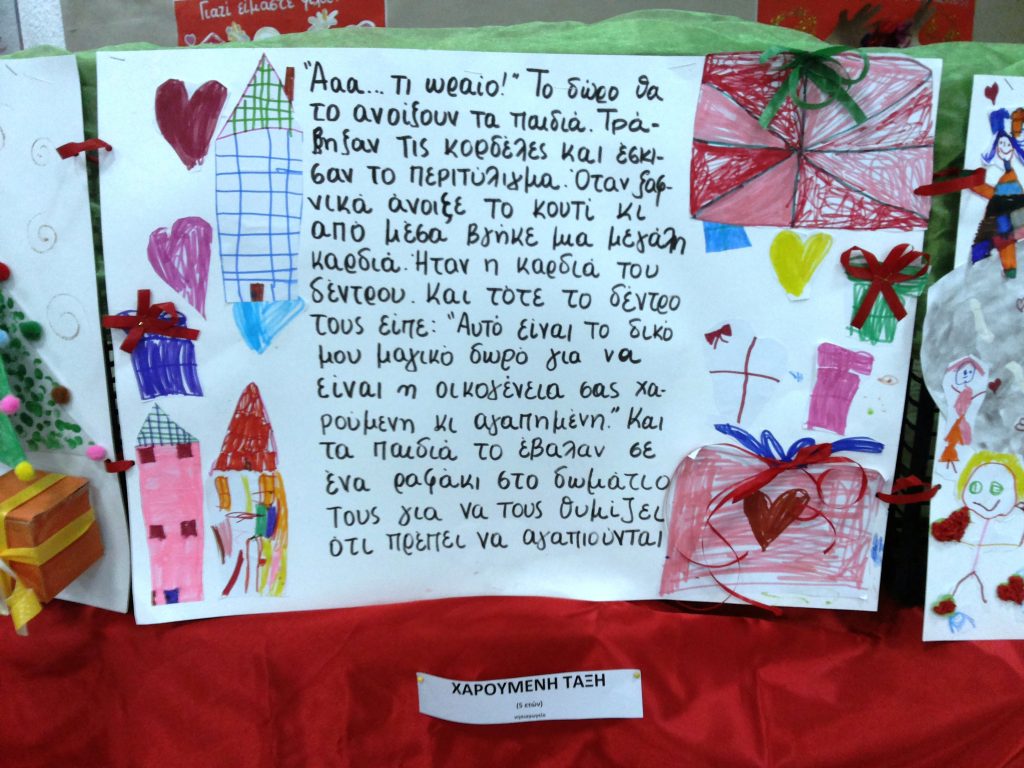 Γιατί είμαστε
"Ααα... τι ωραίο!" Το δώρο θα
το ανοίξουν τα παιδιά. Τρά-
βηξαν τις κορδέλες και έσκι-
σαν το περιτύλιγμα. Όταν ξαφ-
νικά άνοιξε το κουτί κι
από μέσα βγήκε μια μεγάλη
καρδιά. Ήταν η καρδιά του
δέντρου. Και τότε το δέντρο
τους είπε: "Αυτό είναι το δικό
μου μαγικό δωρό για να
είναι η οικογένεια σας χα-
ρούμενη κι αγαπημένη." Και
τα παιδιά το έβαλαν σε
ένα ραφάκι στο δωμάτιο
τους για να τους θυμίζει
ότι πρέπει να αγαπιούνται
ΧΑΡΟΥΜΕΝΗ ΤΑΞΗ
(5 ετών)
νηπιαγωγείο